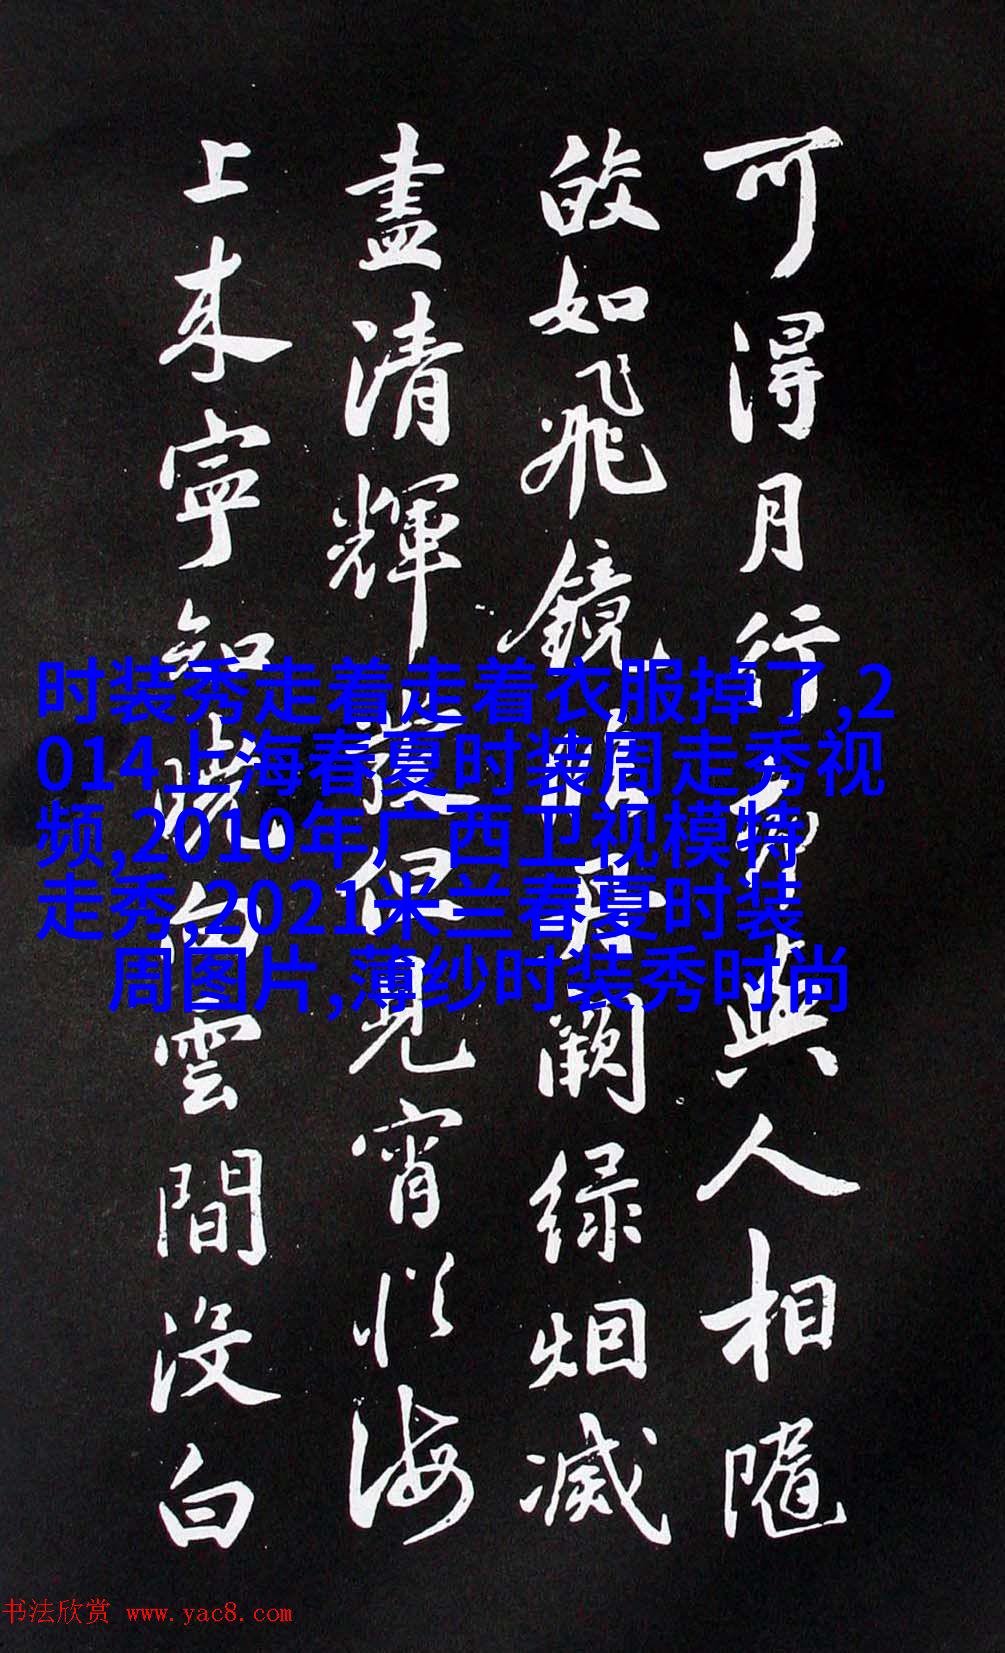 可得月行却與人相隨
皎如飛鏡臨丹闕绿烟滅
盡清輝發但見宵從海
上来寧知曉向雲間没白
时装秀走着走着衣服掉了,2
014上海春夏时装周走秀视
频,2010年广西卫视模特
走秀,2021米兰春夏时装
周图片,薄纱时装秀时尚
书法欣赏 www.yac8.com